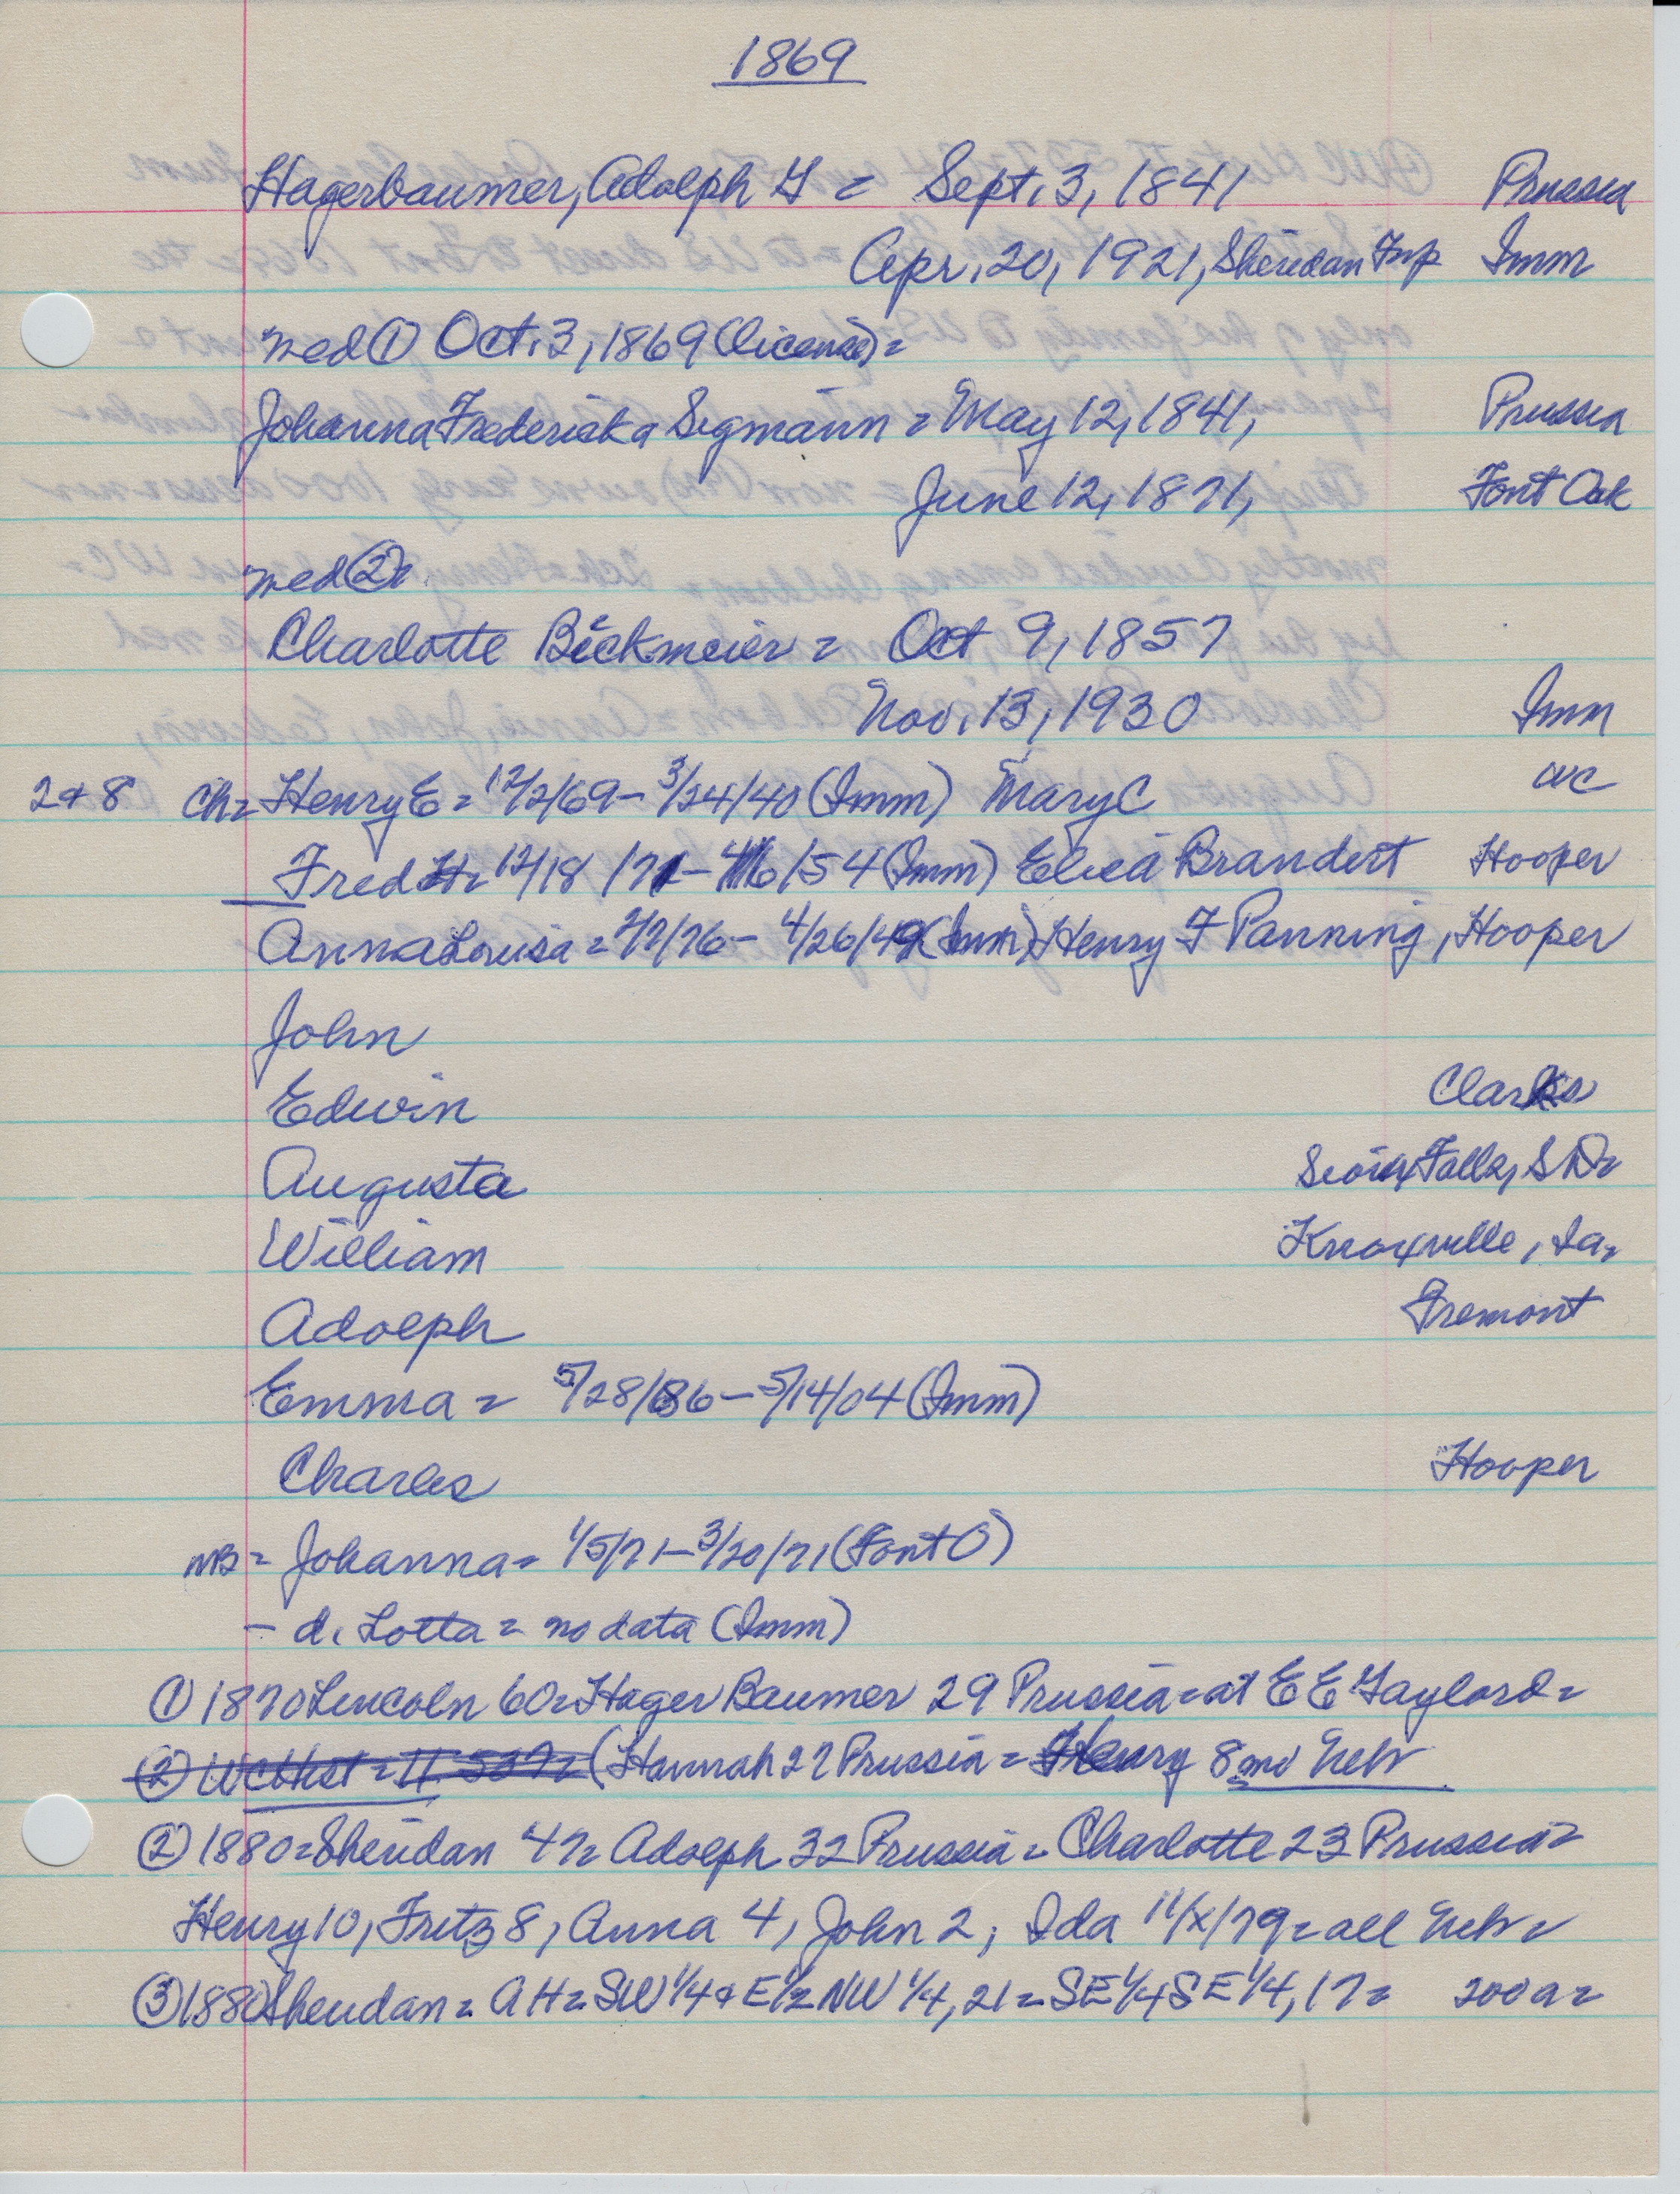 1869
Hagerbaumer, Adolph H = Sept. 3, 1841 Prussia
Apr. 20, 1921, Sheridan Twp Imm
med ① Oct. 3, 1869 (license) =
Johanna Frederick a Sigmann = May 12, 1841, Prussia
June 12, 1871, Font Oak
med ② =
Charlotte Bickmeier = Oct 9, 1857
Nov. 13, 1930 Imm
2 & 8 Ch = Henry E = 12/2/69 - 3/24/40 (Imm) Mary C WC
Fred H = 12/18/71 - /54 (Imm) Brandert Hooper
Anna Louisa = 2/7/76 - 4/26/49 (Imm) Henry F Panning, Hooper
John
Edwin Clarks
Augusta Sioux Falls, SD =
William Knoxville, Ia.
Adolph Fremont
Emma = 5/28/86 - 5/14/04 (Imm)
Charles Hooper
NB = Johanna = 1/5/71 - 3/20/71 (Font O)
- d. Lotta = no data (Imm)
① 1870 Lincoln 60 = Hager Baumer 29 Prussia = at E E Gaylord =
② WC Hist = II 537 = (Hannah 27 Prussia = Henry 8 mo Nebr
② 1880 = Sheridan 47 = Adolph 32 Prussia = Charlotte 23 Prussia =
Henry 10, Fritz 8, Anna 4, John 2, Ida 11/x/79 = all Nebr =
③ 1880 Sheridan = A H = SW 1/4 & E 1/2 NW 1/4, 21 = SE 1/4 SE 1/4, 17 = 200 a =